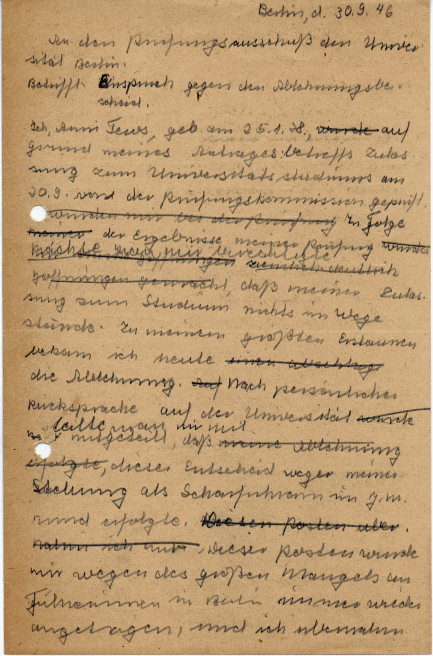 Berlin, d. 30.9.46
An den Prüfungsausschuß der Univer
sität Berlin.
Betrifft: Einspruch gegen den Ablehnungsbe-
scheid.
Ich, Anni Tews, geb. am 25.1.28, wurde auf
grund meines Antrages betreffs Zulas
sung zum Universitätsstudium am
20.9. von der Prüfungskommission geprüft.
wurden mir bei der Prüfung Zu folge
meiner der Ergebnisse meiner Prüfung wurden
machte man mir
ziemlich deutlich
Hoffnungen gemacht, daß meiner Zulas-
sung zum Studium nichts im Wege
stände. Zu meinem größten Erstaunen
bekam ich heute einen abschläg
die Ablehnung. Auf Nach persönlicher
Rücksprache auf der Universität wurde
teilte man mir mit
mitgeteilt, daß meine Ablehnung
erfolgte, dieser Entscheid wegen meiner
Stellung als Scharführerin im J.M.
bund erfolgte. Diesen Posten über-
nahm ich nur Dieser Posten wurde
mir wegen des großen Mangels an
Führerinnen in Berlin immer wieder
angetragen, und ich übernahm